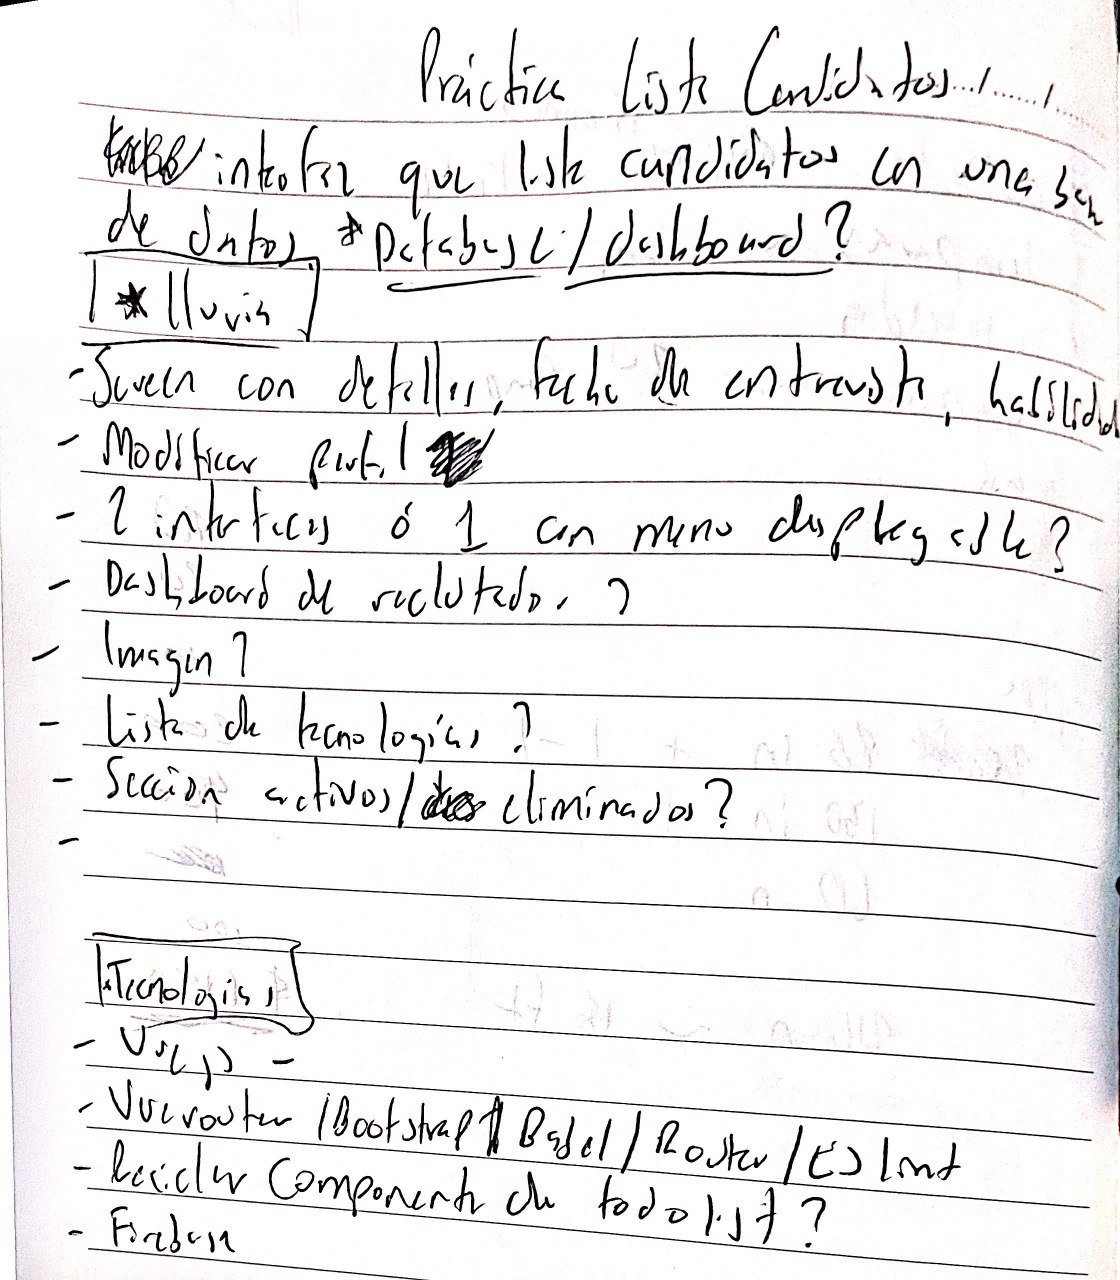 Práctica Lista Candidatos
interfaz que liste candidatos en una base
de datos * Database / dashboard ?
* lluvia
- Screen con detalles, fecha de entrevista, habilidad
- Modificar perfil
- 2 interfaces ó 1 con menu desplegable?
- Dashboard de reclutado. ?
- Imagen ?
- Lista de tecnologías ?
- Sección activos / eliminados ?
-
Tecnologías
- Vuejs -
- Vue router / Bootstrap / Babel / Router / ES lint
- Reciclar Componente de todo list ?
- Firebase